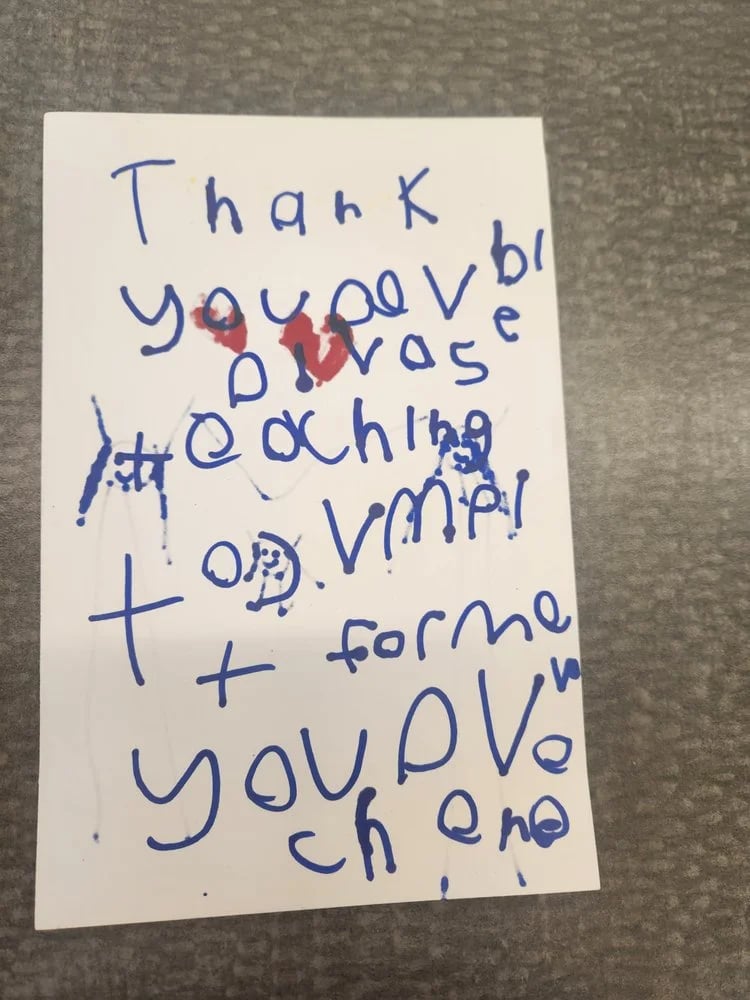 Thank
you Dev ble
Divas
teaching
to D VMPI
t
t forme
you DVe
chene